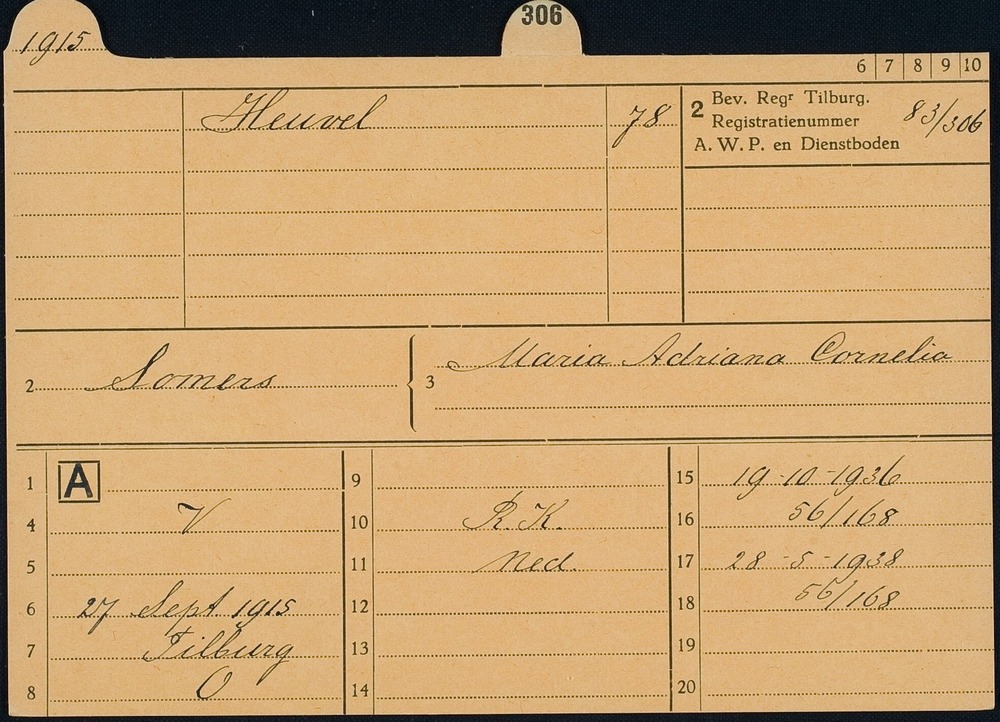 1915
306
6 7 8 9 10
Heuvel 78
2 Bev. Regr Tilburg.
Registratienummer 83/306
A. W. P. en Dienstboden
2 Somers
3 Maria Adriana Cornelia
1 A
4 V
5
6 27 Sept 1915
7 Tilburg
8 O
9
10 R. K.
11 Ned.
12
13
14
15 19-10-1936
16 56/168
17 28-5-1938
18 56/168
19
20